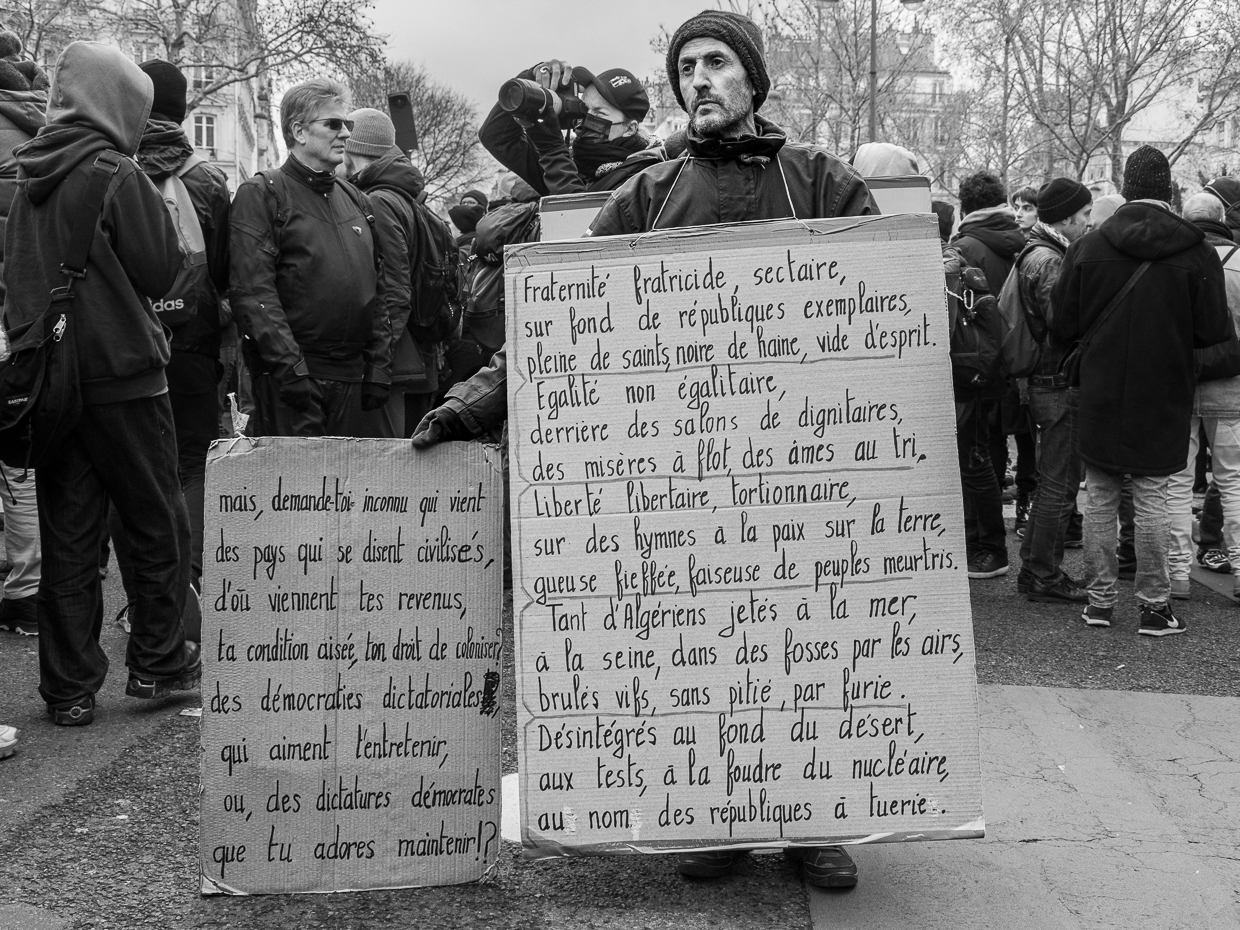 Fraternité fratricide, sectaire,
sur fond de républiques exemplaires,
pleine de saints, noire de haine, vide d'esprit.
Egalité non égalitaire,
derrière des salons de dignitaires,
des misères à flot, des âmes au tri,
Liberté libertaire, tortionnaire,
sur des hymnes à la paix sur la terre,
gueuse fieffée, faiseuse de peuples meurtris.
Tant d'Algériens jetés à la mer,
à la seine, dans des fosses par les airs,
brulés vifs, sans pitié, par furie.
Désintégrés au fond du désert,
aux tests, à la foudre du nucléaire,
au nom des républiques à tuerie.
mais, demande-toi inconnu qui vient
des pays qui se disent civilisés,
d'où viennent tes revenus,
ta condition aisée, ton droit de coloniser?
des démocraties dictatoriales,
qui aiment t'entretenir,
ou, des dictatures démocrates
que tu adores maintenir!?
adidas